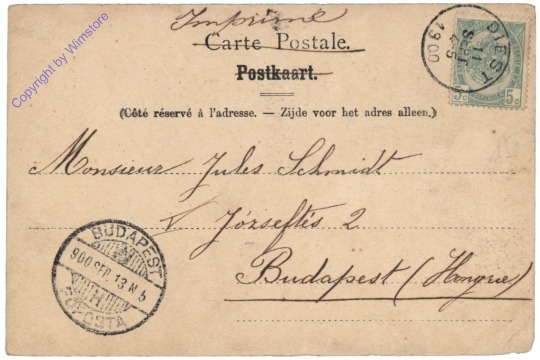 Imprimé
Carte Postale.
Postkaart.
(Côté réservé à l'adresse. — Zijde voor het adres alleen.)
Monsieur Jules Schmidt
Józseftés 2
Budapest (Hongrie)
DIEST
11
SEPT
5
1900
5c 5c
BUDAPEST
900 SEP. 13 N 5
FŐPOSTA
Copyright by Wimstore